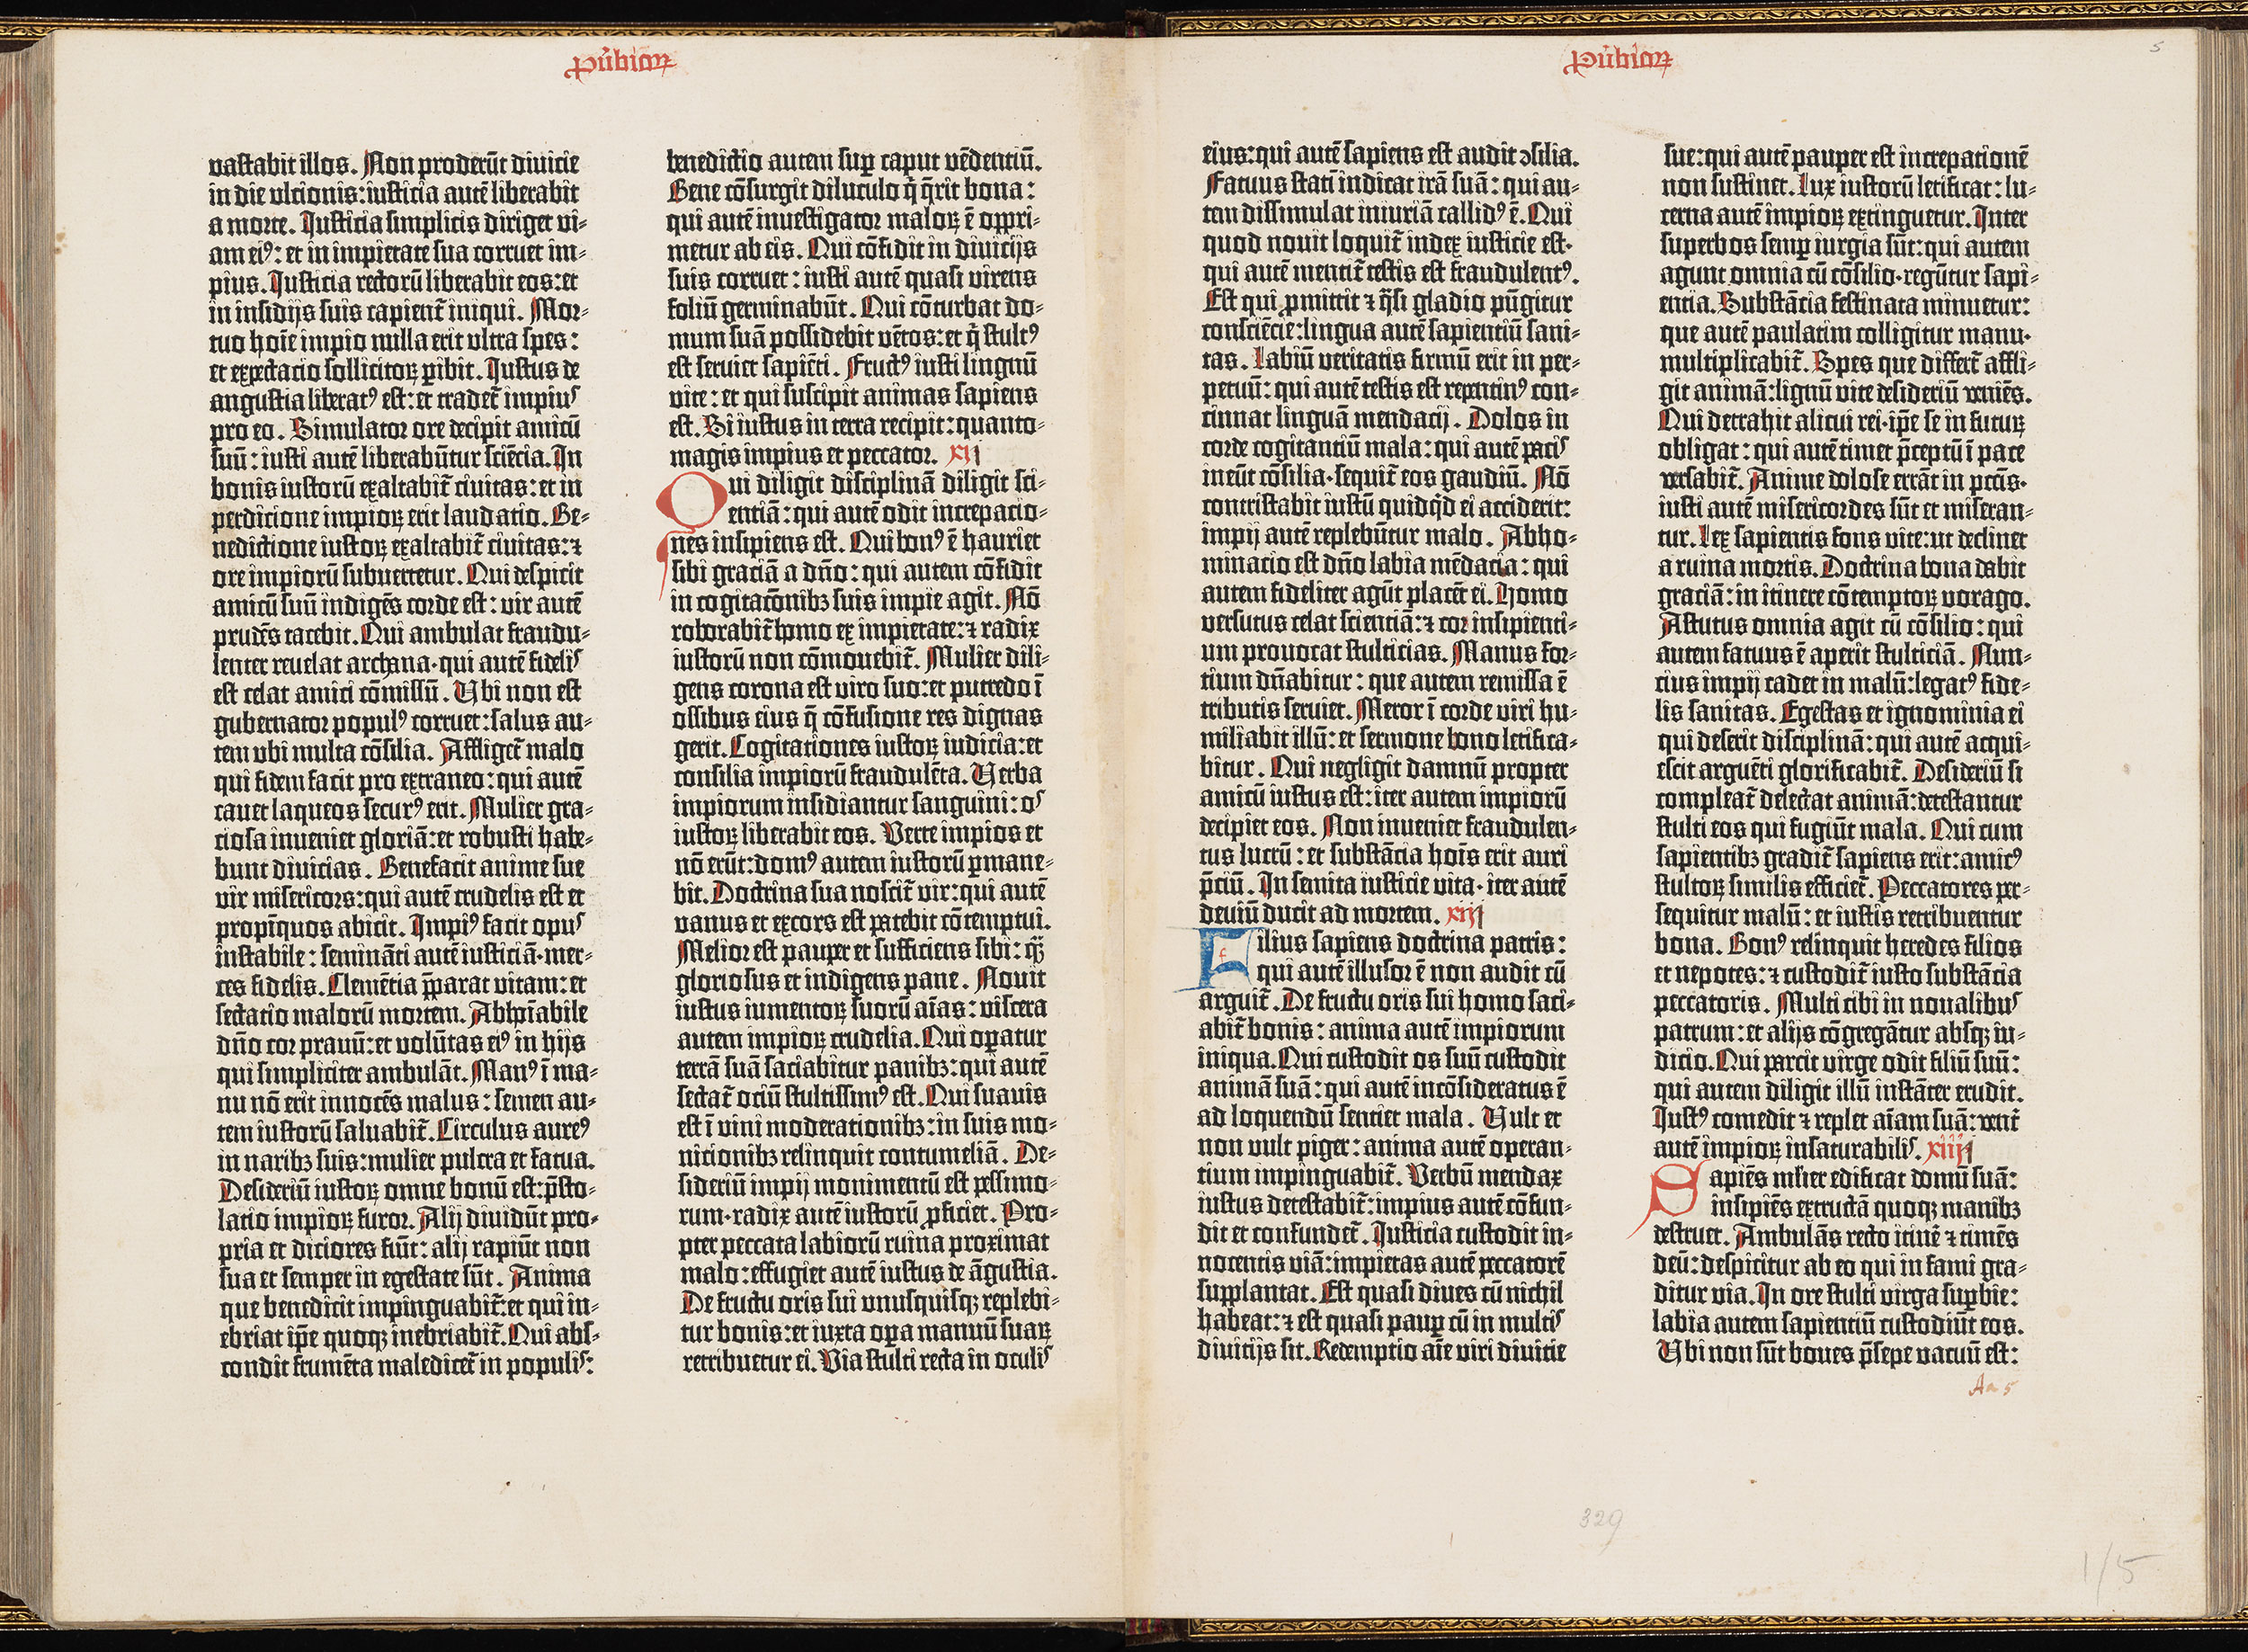 ꝓũbioꝝ
vastabit illos. Non proderūt diuicie
in die vlcionis: iusticia autē liberabit
a morte. Iusticia simplicis diriget vi-
am eiꝰ: et in impietate sua corruet im-
pius. Iusticia rectorū liberabit eos: et
in insidijs suis capient᷑ iniqui. Mor-
tuo hoīe impio nulla erit vltra spes:
et expectacio sollicitoꝝ ꝑibit. Iustus de
angustia liberatꝰ est: et tradet᷑ impius
pro eo. Simulator ore decipit amicū
suū: iusti autē liberabūtur sciēcia. In
bonis iustorū exaltabit᷑ ciuitas: et in
perdicione impioꝝ erit laudatio. Be-
nedictione iustoꝝ exaltabit᷑ ciuitas: ⁊
ore impiorū subuertetur. Qui despicit
amicū suū indigēs corde est: vir autē
prudēs tacebit. Qui ambulat fraudu-
lenter reuelat archana· qui autē fidelis
est celat amici cōmissū. Vbi non est
gubernator populꝰ corruet: salus au-
tem vbi multa cōsilia. Affliget᷑ malo
qui fidem facit pro extraneo: qui autē
cauet laqueos securꝰ erit. Mulier gra-
ciosa inueniet gloriā: et robusti habe-
bunt diuicias. Benefacit anime sue
vir misericors: qui autē crudelis est et
propīquos abicit. Impiꝰ facit opus
instabile: semināti autē iusticiā· mer-
ces fidelis. Clemētia p̄parat vitam: et
sectatio malorū mortem. Abhoīabile
dn̄o cor prauū: et volūtas eiꝰ in hijs
qui simpliciter ambulāt. Manꝰ ī ma-
nu nō erit innocēs malus: semen au-
tem iustorū saluabit᷑. Circulus aureꝰ
in naribꝫ suis: mulier pulcra et fatua.
Desideriū iustoꝝ omne bonū est: p̄sto-
latio impioꝝ furor. Alij diuidūt pro-
pria et diciores fiūt: alij rapiūt non
sua et semper in egestate sūt. Anima
que benedicit impinguabit᷑: et qui in-
ebriat ip̄e quoqꝫ inebriabit᷑. Qui abs-
condit frumēta maledicet᷑ in populis:
benedictio autem suꝑ caput vēdentiū.
Bene cōsurgit diluculo q̇ q̄rit bona:
qui autē inuestigator maloꝝ ē oppri-
metur ab eis. Qui cōfidit in diuicijs
suis corruet: iusti autē quasi virens
foliū germinabūt. Qui cōturbat do-
mum suā possidebit vētos: et q̇ stultꝰ
est seruiet sapiēti. Fructꝰ iusti lingnū
vite: et qui suscipit animas sapiens
est. Si iustus in terra recipit: quanto-
magis impius et peccator. xij
Qui diligit disciplinā diligit sci-
entiā: qui autē odit increpacio-
nes insipiens est. Qui bonꝰ ē hauriet
sibi graciā a dn̄o: qui autem cōfidit
in cogitacōnibꝫ suis impie agit. Nō
roborabit᷑ homo ex impietate: ⁊ radix
iustorū non cōmouebit᷑. Mulier dili-
gens corona est viro suo: et putredo ī
ossibus eius q̄ cōfusione res dignas
gerit. Cogitationes iustoꝝ iudicia: et
consilia impiorū fraudulēta. Verba
impiorum insidiantur sanguini: os
iustoꝝ liberabit eos. Verte impios et
nō erūt: domꝰ autem iustorū ꝑmane-
bit. Doctrina sua noscit᷑ vir: qui autē
vanus et excors est patebit cōtemptui.
Melior est pauper et sufficiens sibi: qꝫ
gloriosus et indigens pane. Nouit
iustus iumentoꝝ suorū aīas: viscera
autem impioꝝ crudelia. Qui oꝑatur
terrā suā saciabitur panibꝫ: qui autē
sectat᷑ ociū stultissimꝰ est. Qui suauis
est ī vini moderationibꝫ: in suis mo-
nicionibꝫ relinquit contumeliā. De-
sideriū impij monimentū est pessimo-
rum· radix autē iustorū ꝓficiet. Pro-
pter peccata labiorū ruina proximat
malo: effugiet autē iustus de āgustia.
De fructu oris sui vnusquisqꝫ replebi-
tur bonis: et iuxta oꝑa manuū suaꝝ
retribuetur ei. Via stulti recta in oculis
ꝓũbioꝝ
5
eius: qui autē sapiens est audit ꝯsilia.
Fatuus statī indicat irā suā: qui au-
tem dissimulat iniuriā callidꝰ ē. Qui
quod nouit loquit᷑ index iusticie est·
qui autē mentit᷑ testis est fraudulentꝰ.
Est qui ꝓmittit ⁊ q̄si gladio pūgitur
consciēcie: lingua autē sapientiū sani-
tas. Labiū veritatis firmū erit in per-
petuū: qui autē testis est repentinꝰ con-
cinnat linguā mendacij. Dolos in
corde cogitantiū mala: qui autē pacis
ineūt cōsilia· sequit᷑ eos gaudiū. Nō
contristabit iustū quidq̇d ei acciderit:
impij autē replebūtur malo. Abho-
minacio est dn̄o labia mēdacia: qui
autem fideliter agūt placēt ei. Homo
versutus celat scientiā: ⁊ cor insipienti-
um prouocat stulticias. Manus for-
tium dn̄abitur: que autem remissa ē
tributis seruiet. Meror ī corde viri hu-
miliabit illū: et sermone bono letifica-
bitur. Qui negligit damnū propter
amicū iustus est: iter autem impiorū
decipiet eos. Non inueniet fraudulen-
tus lucrū: et substācia hoīs erit auri
p̄ciū. In semita iusticie vita· iter autē
deuiū ducit ad mortem. xiij
Filius sapiens doctrina patris:
qui autē illusor ē non audit cū
arguit᷑. De fructu oris sui homo saci-
abit᷑ bonis: anima autē impiorum
iniqua. Qui custodit os suū custodit
animā suā: qui autē incōsideratus ē
ad loquendū sentiet mala. Vult et
non vult piger: anima autē operan-
tium impinguabit᷑. Verbū mendax
iustus detestabit᷑: impius autē cōfun-
dit et confundet᷑. Iusticia custodit in-
nocentis viā: impietas autē peccatorē
supplantat. Est quasi diues cū nichil
habeat: ⁊ est quasi pauꝑ cū in multis
diuicijs sit. Redemptio aīe viri diuicie
sue: qui autē pauper est increpationē
non sustinet. Lux iustorū letificat: lu-
cerna autē impioꝝ extinguetur. Inter
superbos semꝑ iurgia sūt: qui autem
agunt omnia cū cōsilio· regūtur sapi-
entia. Substācia festinata minuetur:
que autē paulatim colligitur manu·
multiplicabit᷑. Spes que differt᷑ affli-
git animā: lignū vite desideriū veniēs.
Qui detrahit alicui rei· ip̄e se in futuꝝ
obligat: qui autē timet p̄ceptū ī pace
versabit᷑. Anime dolose errāt in pctīs·
iusti autē misericordes sūt et miseran-
tur. Lex sapientis fons vite: ut declinet
a ruina mortis. Doctrina bona dabit
graciā: in itinere cōtemptoꝝ vorago.
Astutus omnia agit cū cōsilio: qui
autem fatuus ē aperit stulticiā. Nun-
cius impij cadet in malū: legatꝰ fide-
lis sanitas. Egestas et ignominia ei
qui deserit disciplinā: qui autē acqui-
escit arguēti glorificabit᷑. Desideriū si
compleat᷑ delectat animā: detestantur
stulti eos qui fugiūt mala. Qui cum
sapientibꝫ gradit᷑ sapiens erit: amicꝰ
stultoꝝ similis efficiet᷑. Peccatores per-
sequitur malū: et iustis retribuentur
bona. Bonꝰ relinquit heredes filios
et nepotes: ⁊ custodit᷑ iusto substācia
peccatoris. Multi cibi in noualibus
patrum: et alijs cōgregātur absqꝫ iu-
dicio. Qui parcit virge odit filiū suū:
qui autem diligit illū instāter erudit.
Iustꝰ comedit ⁊ replet aīam suā: vent᷑
autē impioꝝ insaturabilis. xiiij
Sapiēs ml̄ier edificat domū suā:
insipiēs extructā quoqꝫ manibꝫ
destruet. Ambulās recto itīnē ⁊ timēs
deū: despicitur ab eo qui in fami gra-
ditur via. In ore stulti virga suꝑbie:
labia autem sapientiū custodiūt eos.
Vbi non sūt boues p̄sepe vacuū est:
Aa 5
329
1/5